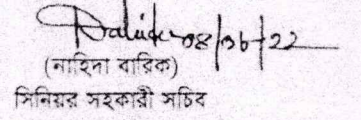 08/06/22
(নাহিদা বারিক)
সিনিয়র সহকারী সচিব